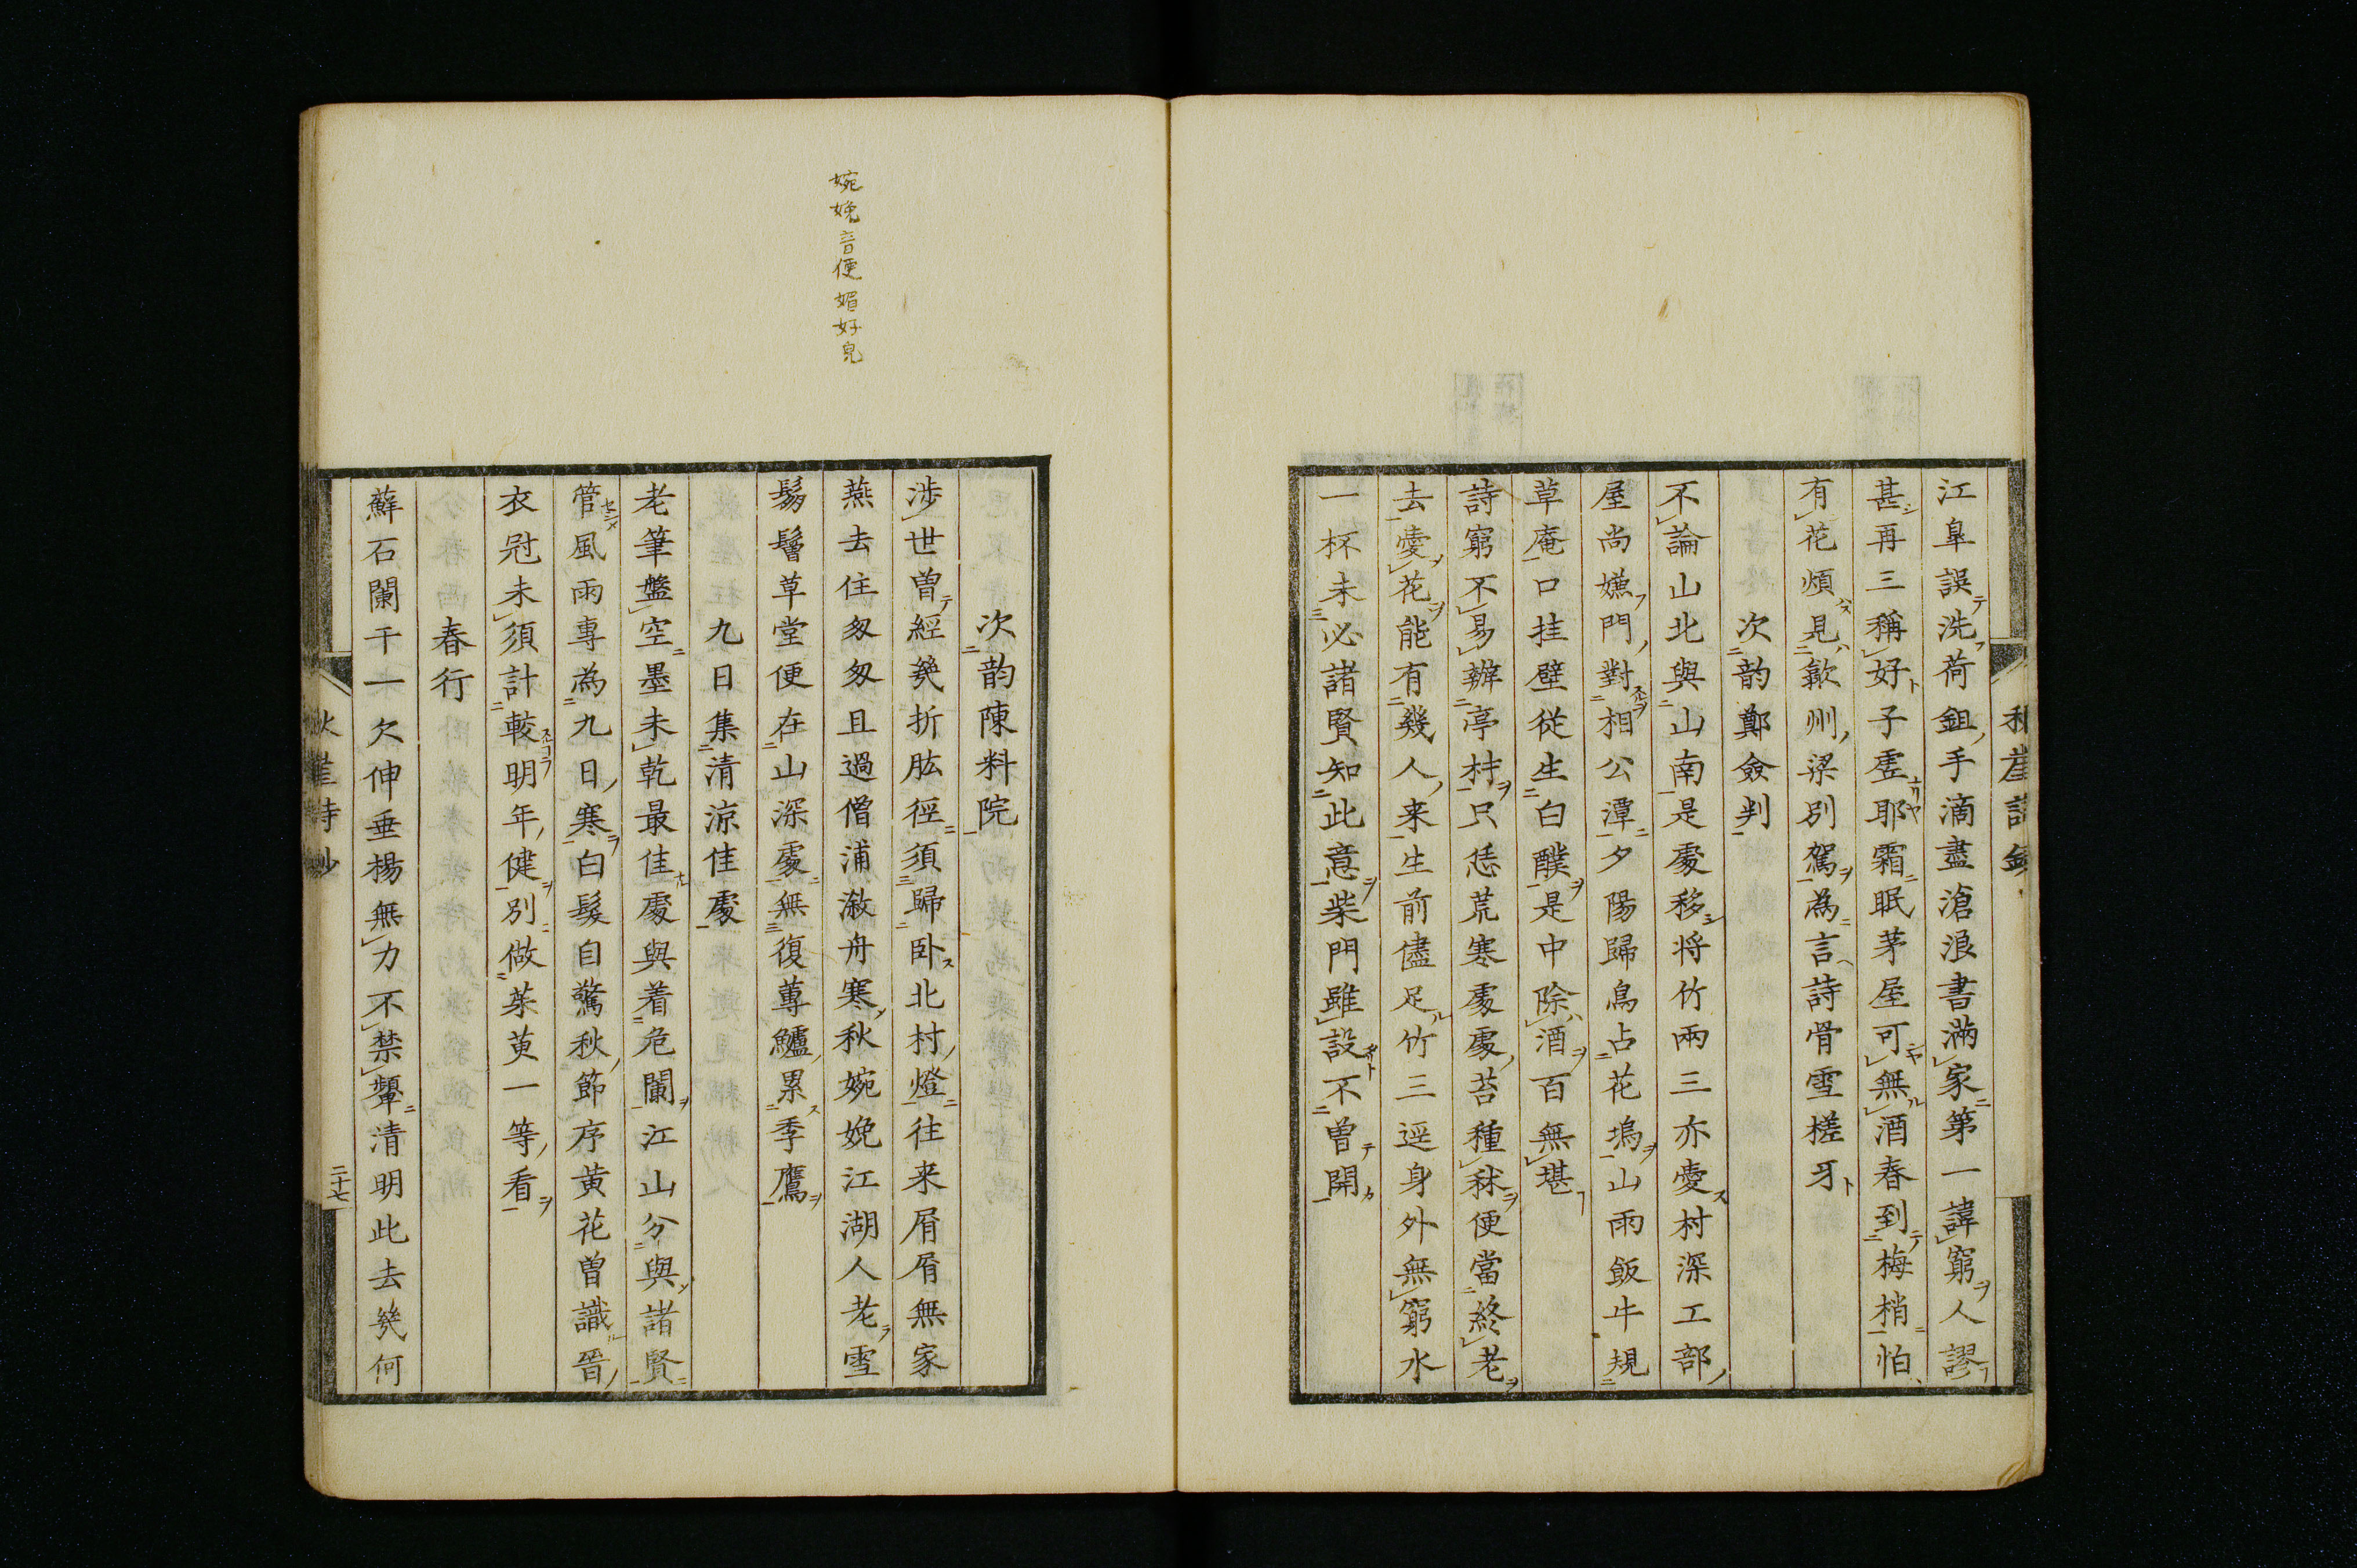 江皐誤洗荷鉏手滴盡滄浪書滿家第一諱窮人謬
甚再三稱好子虛耶霜眠茅屋可無酒春到梅梢怕
有花煩見歙州梁別駕為言詩骨雪槎牙
次韵鄭僉判
不論山北與山南是處移将竹兩三亦愛村深工部
屋尚嫌門對相公潭夕陽歸鳥占花塢山雨飯牛規
草庵口挂壁從生白醭是中除酒百無堪
詩窮不易辦亭村只恁荒寒處處苔種秫便當終老
去愛花能有幾人来生前儘足竹三逕身外無窮水
一杯未必諸賢知此意柴門雖設不曾開
秋崖詩鈔
婉娩音便媚好皃
次韵陳料院
涉世曽經㡬折肱徑須歸卧北村燈往来屑屑無家
燕去住匆匆且過僧浦漵舟寒秋婉娩江湖人老雪
鬅鬙草堂便在山深處無復蓴鱸累季鷹
九日集清涼佳處
老筆盤空墨未乾最佳處與着危闌江山分與諸賢
管風雨專為九日寒白髮自驚秋節序黄花曽識晉
衣冠未須計較明年健別做茱萸一等看
春行
蘚石闌干一欠伸垂楊無力不禁顰清明此去㡬何
秋崖詩鈔
二十七